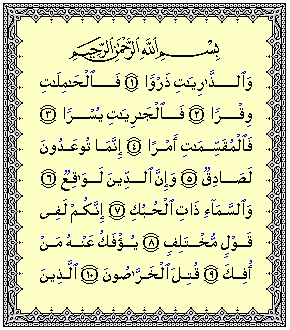 بِسْمِ ٱللَّهِ ٱلرَّحْمَٰنِ ٱلرَّحِيمِ
وَٱلذَّٰرِيَٰتِ ذَرْوًا ١ فَٱلْحَٰمِلَٰتِ
وِقْرًا ٢ فَٱلْجَٰرِيَٰتِ يُسْرًا ٣
فَٱلْمُقَسِّمَٰتِ أَمْرًا ٤ إِنَّمَا تُوعَدُونَ
لَصَادِقٌ ٥ وَإِنَّ ٱلدِّينَ لَوَٰقِعٌ ٦
وَٱلسَّمَآءِ ذَاتِ ٱلْحُبُكِ ٧ إِنَّكُمْ لَفِى
قَوْلٍ مُّخْتَلِفٍ ٨ يُؤْفَكُ عَنْهُ مَنْ
أُفِكَ ٩ قُتِلَ ٱلْخَرَّٰصُونَ ١٠ ٱلَّذِينَ